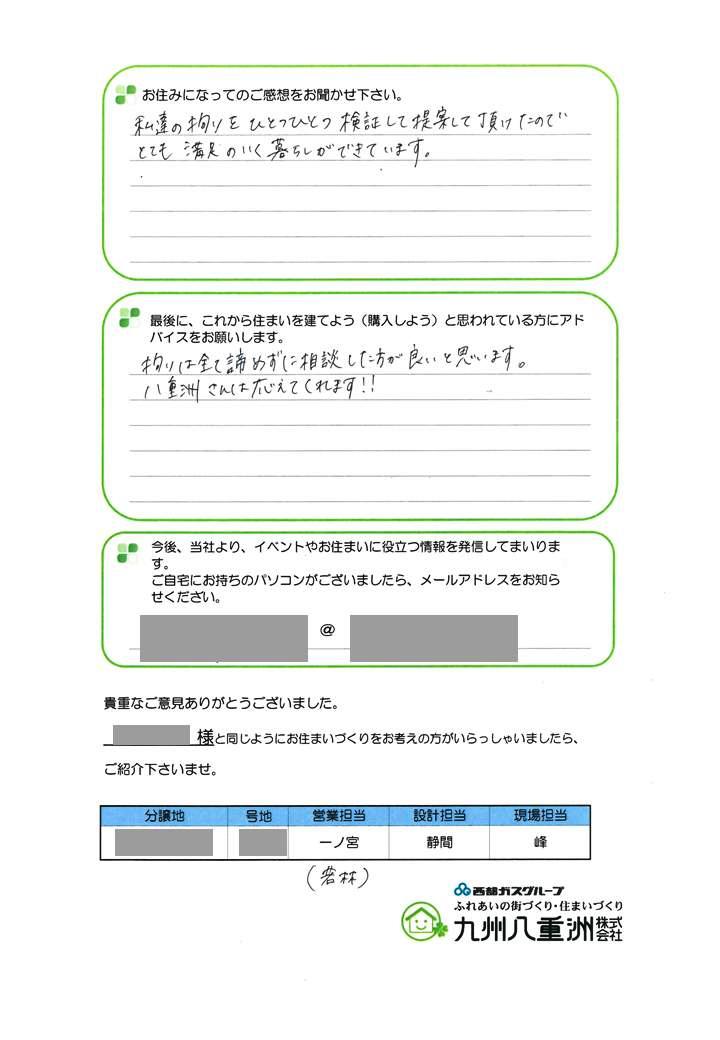 お住みになってのご感想をお聞かせ下さい。
私達の拘りをひとつひとつ検証して提案して頂けたので
とても満足のいく暮らしができています。
最後に、これから住まいを建てよう（購入しよう）と思われている方にアド
バイスをお願いします。
拘りは全て諦めずに相談した方が良いと思います。
八重洲さんは応えてくれます!!
今後、当社より、イベントやお住まいに役立つ情報を発信してまいりま
す。
ご自宅にお持ちのパソコンがございましたら、メールアドレスをお知ら
せください。
@
貴重なご意見ありがとうございました。
様と同じようにお住まいづくりをお考えの方がいらっしゃいましたら、
ご紹介下さいませ。
分譲地 号地 営業担当 設計担当 現場担当
一ノ宮 静間 峰
(若林)
西部ガスグループ
ふれあいの街づくり・住まいづくり
九州八重洲株式会社